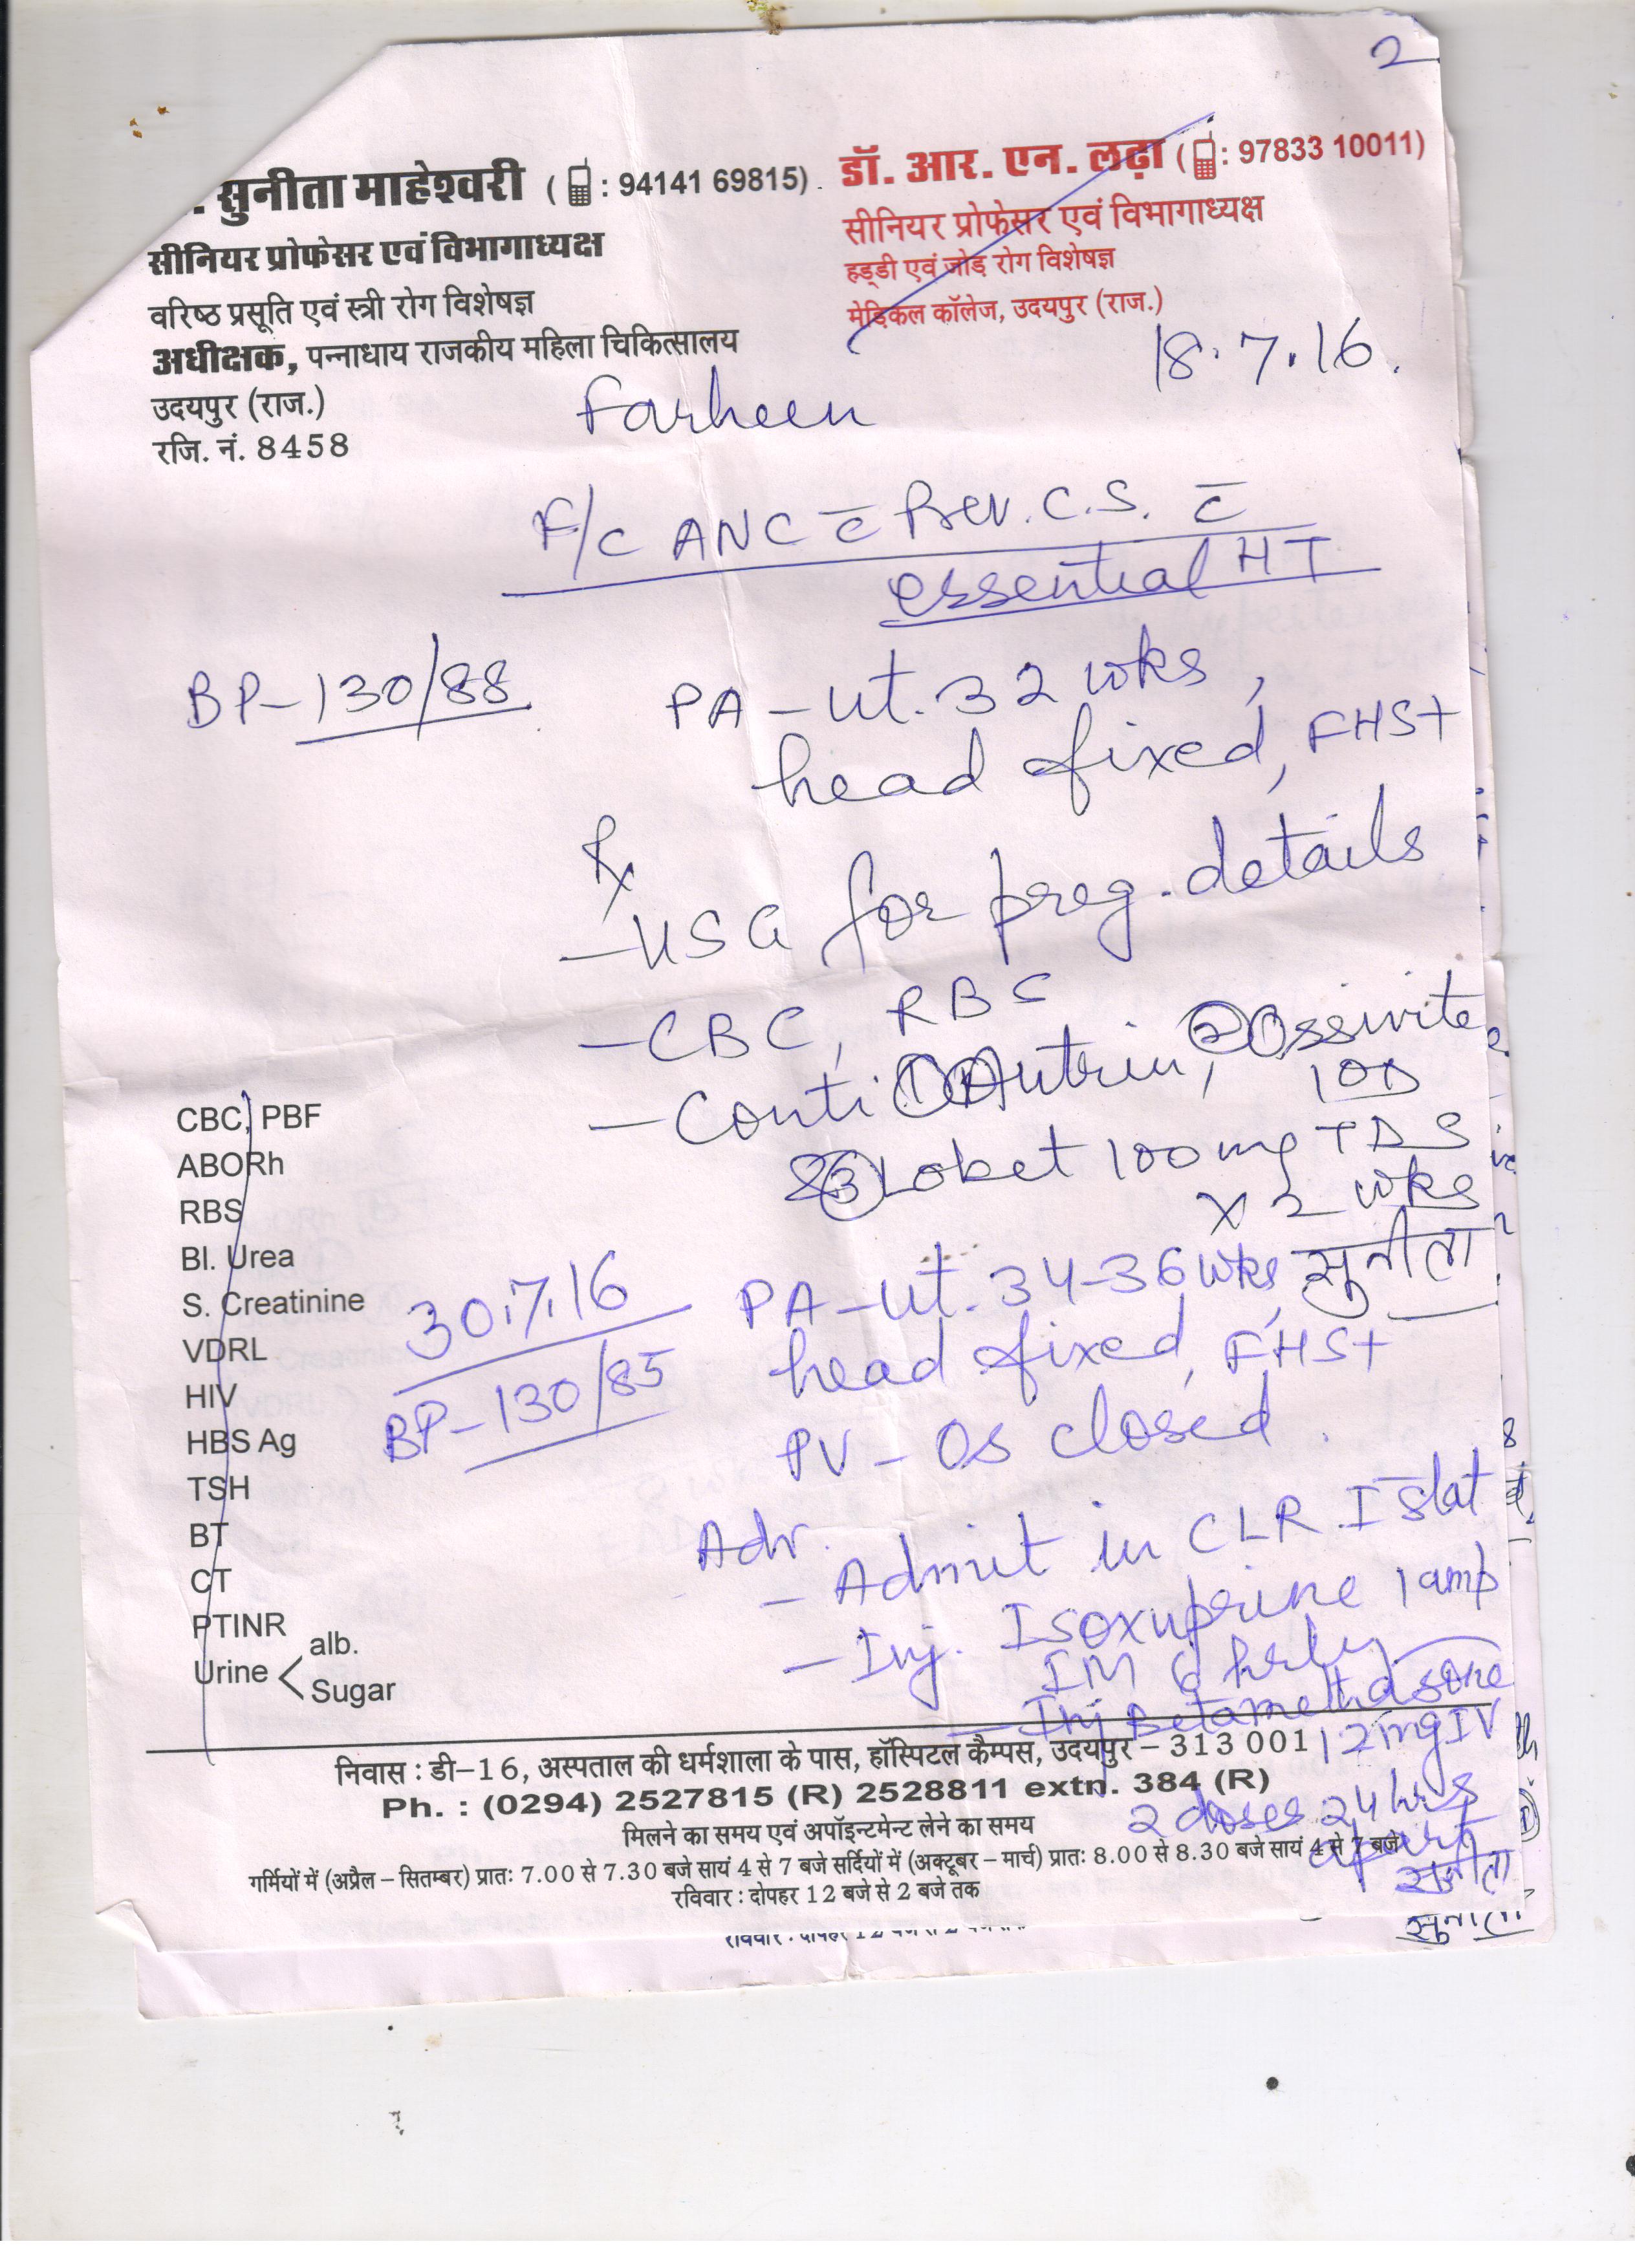 2
. सुनीता माहेश्वरी ( : 94141 69815)
डॉ. आर. एन. लढ़ा ( : 97833 10011)
सीनियर प्रोफेसर एवं विभागाध्यक्ष
सीनियर प्रोफेसर एवं विभागाध्यक्ष
हड्डी एवं जोड़ रोग विशेषज्ञ
मेडिकल कॉलेज, उदयपुर (राज.)
वरिष्ठ प्रसूति एवं स्त्री रोग विशेषज्ञ
अधीक्षक, पन्नाधाय राजकीय महिला चिकित्सालय
उदयपुर (राज.)
रजि. नं. 8458
18.7.16.
Farheen
F/c ANC c̄ Prev. C.S. c̄
essential HT
BP-130/88
PA-ut. 32 wks,
head fixed, FHS+
Rx
-USG for preg. details
-CBC, RBS
-Conti ① Autrin, ② Ossivite
1OD
③ Lobet 100mg TDS
x 2 wks
सुनीता
CBC, PBF
ABORh
RBS
Bl. Urea
S. Creatinine
VDRL
HIV
HBS Ag
TSH
BT
CT
PTINR
Urine < alb.
Sugar
30.7.16
BP-130/85
PA-ut. 34-36 wks,
head fixed, FHS+
PV-OS closed.
Adv.
- Admit in CLR I stat
- Inj. Isoxuprine 1 amp
IM 6 hrly
- Inj Betamethasone
12mg IV
2 doses 24 hrs
apart
सुनीता
निवास : डी-16, अस्पताल की धर्मशाला के पास, हॉस्पिटल कैम्पस, उदयपुर - 313 001
Ph. : (0294) 2527815 (R) 2528811 extn. 384 (R)
मिलने का समय एवं अपॉइन्टमेन्ट लेने का समय
गर्मियों में (अप्रैल - सितम्बर) प्रातः 7.00 से 7.30 बजे सायं 4 से 7 बजे सर्दियों में (अक्टूबर - मार्च) प्रातः 8.00 से 8.30 बजे सायं 4 से 7 बजे
रविवार : दोपहर 12 बजे से 2 बजे तक
सुनीता